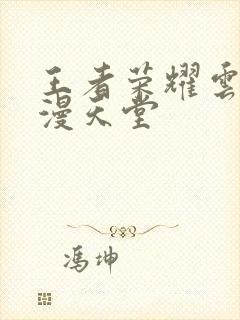 王者荣耀雲
漫天堂
冯坤